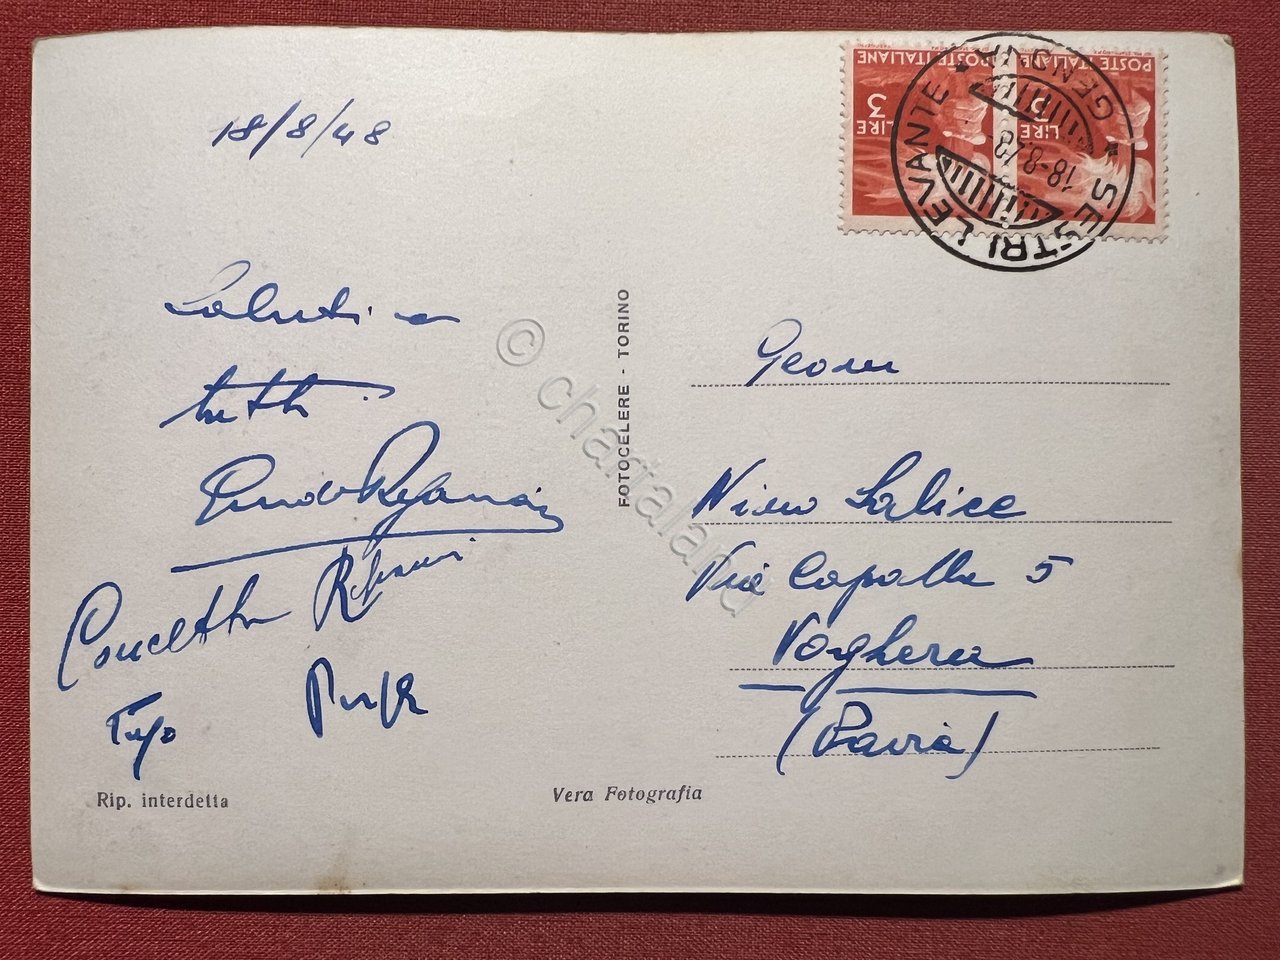 18/8/48
Saluti a
tutti
Concetta
Rip. interdetta
Vera Fotografia
FOTOCELERE - TORINO
© chartaland
POSTE ITALIANE
LIRE 3
POSTE ITALIANE
LIRE 3
SESTRI LEVANTE * GENOVA *
18-8-48
Geom
Nino Salice
Via Capella 5
Voghera
(Pavia)